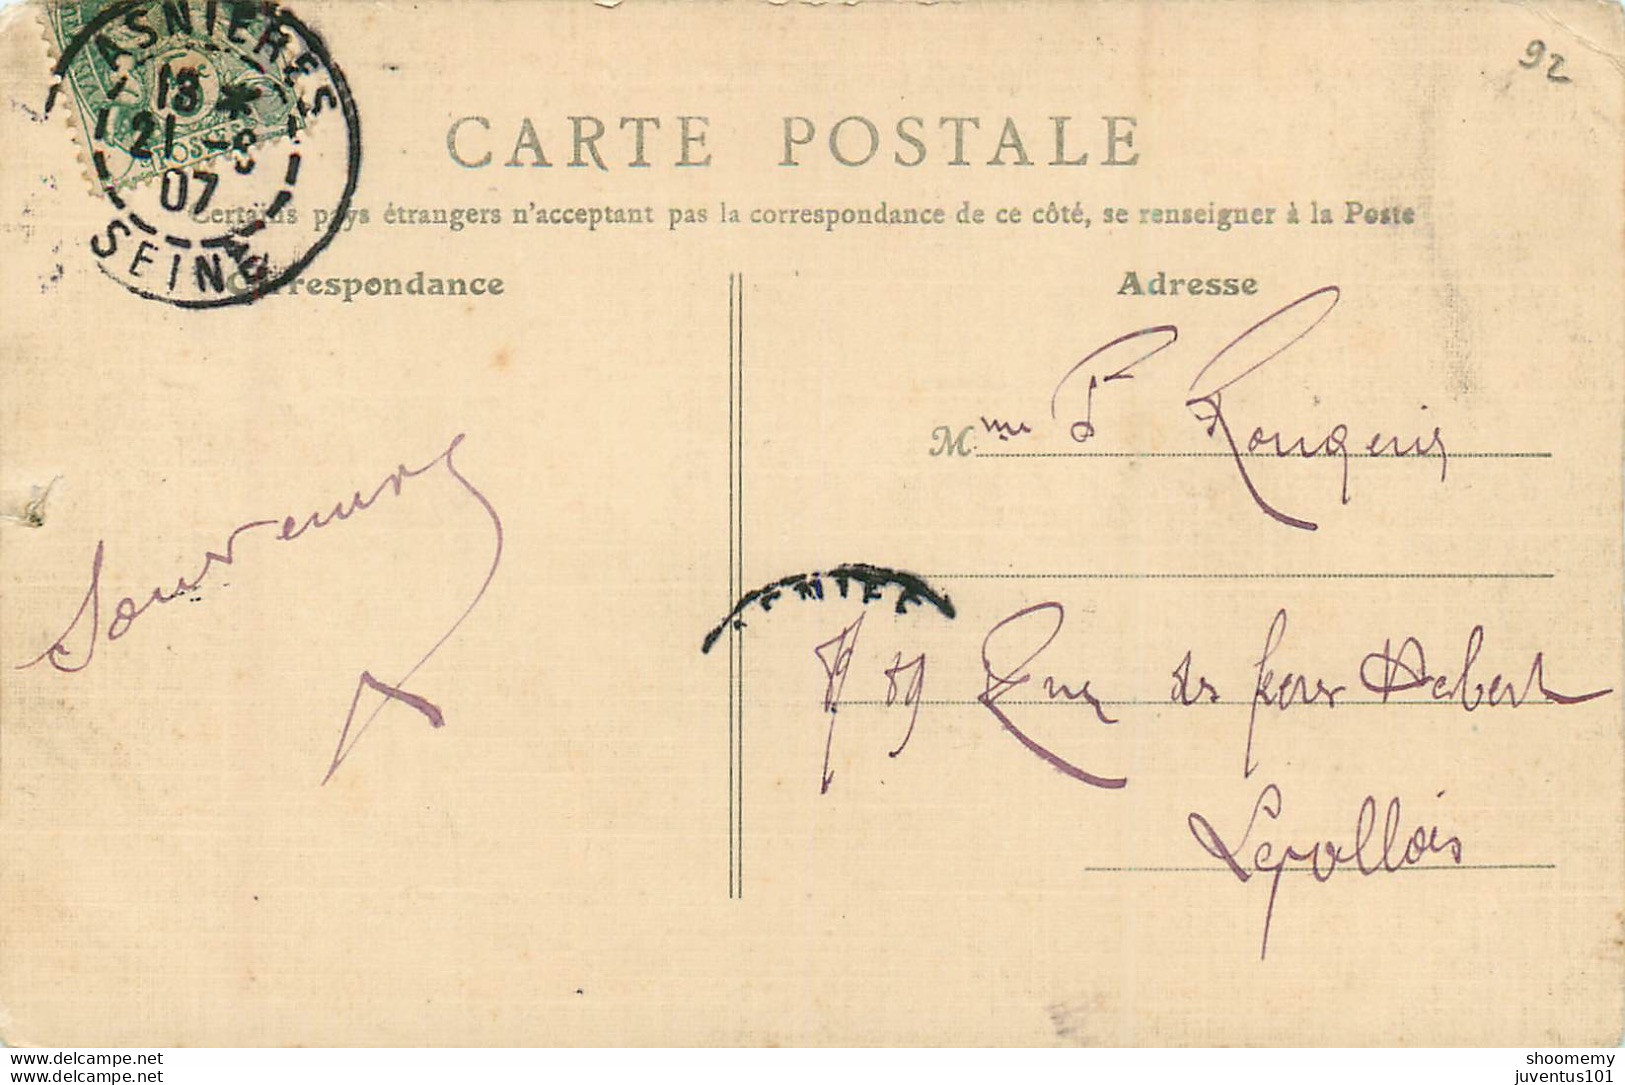 92
ASNIERES
13 *
21 -8
07
SEINE
CARTE POSTALE
Certains pays étrangers n'acceptant pas la correspondance de ce côté, se renseigner à la Poste
Correspondance
Adresse
Mme
Souvenirs
89 Rue des frères Herbert
Levallois
www.delcampe.net
www.delcampe.net
shoomemy
juventus101